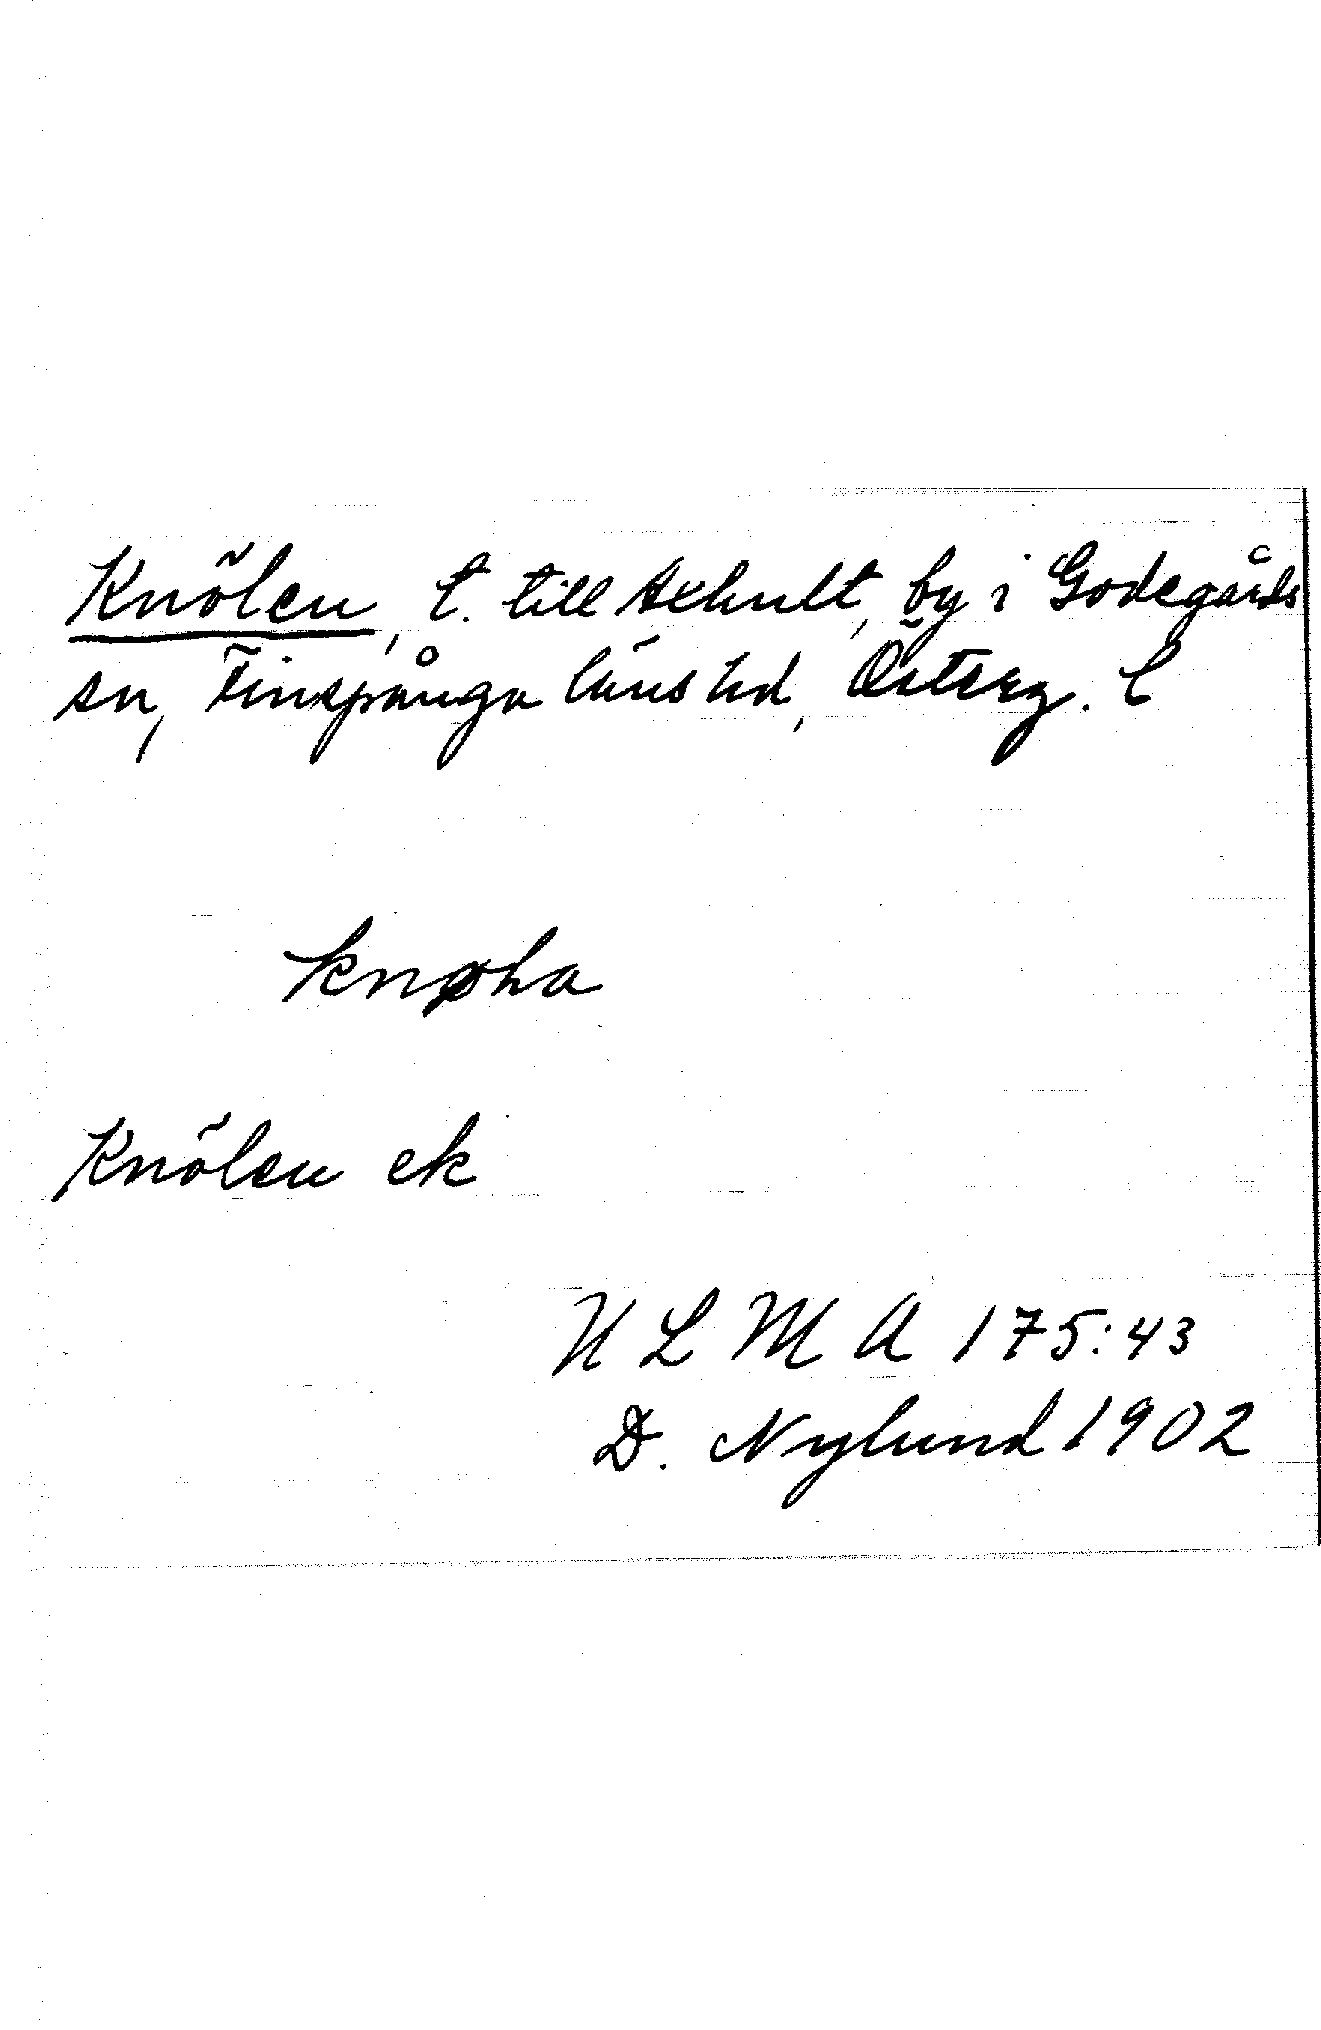 Knölen, t. till Axhult, by i Godegårds
sn, Finspånga läns hd, Österg. l
knøla
Knölen ek
ULMA 175:43
D. Nylund 1902